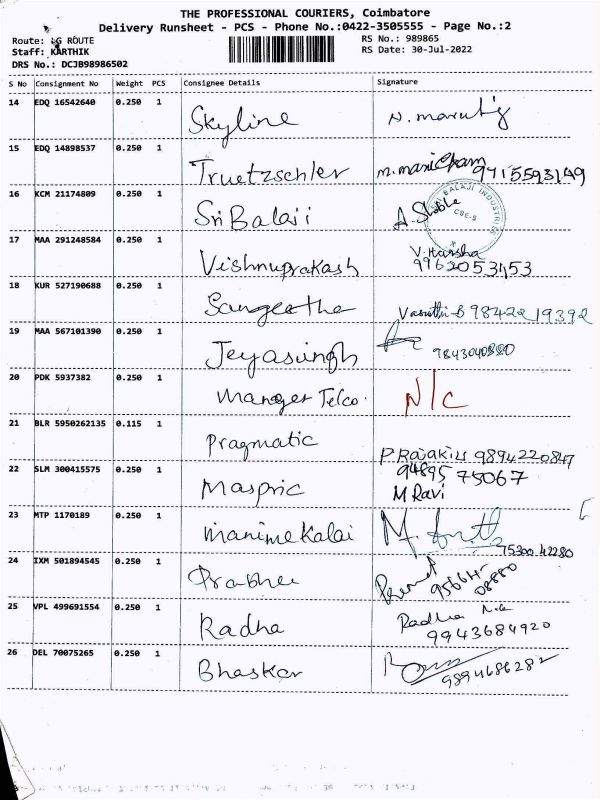 THE PROFESSIONAL COURIERS, Coimbatore
Delivery Runsheet - PCS - Phone No.:0422-3505555 - Page No.:2
Route: LG ROUTE RS No.: 989865
Staff: KARTHIK RS Date: 30-Jul-2022
DRS No.: DCJB98986502
S No Consignment No Weight PCS Consignee Details Signature
14 EDQ 16542640 0.250 1 Skyline N. maruti
15 EDQ 14898537 0.250 1 Truetzschler m. manickam 9715593149
16 KCM 21174809 0.250 1 Sri Balaji A. BALAJI INDUSTRIES CBE-9
17 MAA 291248584 0.250 1 Vishnuprakash V. Harsha
9962053153
18 KUR 527190688 0.250 1 Sangeetha Vasuthi-B 98422 19392
19 MAA 567101390 0.250 1 Jeyasuingh 9843040880
20 PDK 5937382 0.250 1 Manager Telco. N/c
21 BLR 5950262135 0.115 1 Pragmatic P. Rajakili 9894220847
22 SLM 300415575 0.250 1 Maspric 94895 75067
M Ravi
23 MTP 1170189 0.250 1 Manimekalai M. 75300 42280
24 IXM 501894545 0.250 1 Prabhu 95664-
08880
25 VPL 499691554 0.250 1 Radha Radha
9943684920
26 DEL 70075265 0.250 1 Bhaskar 9894686282